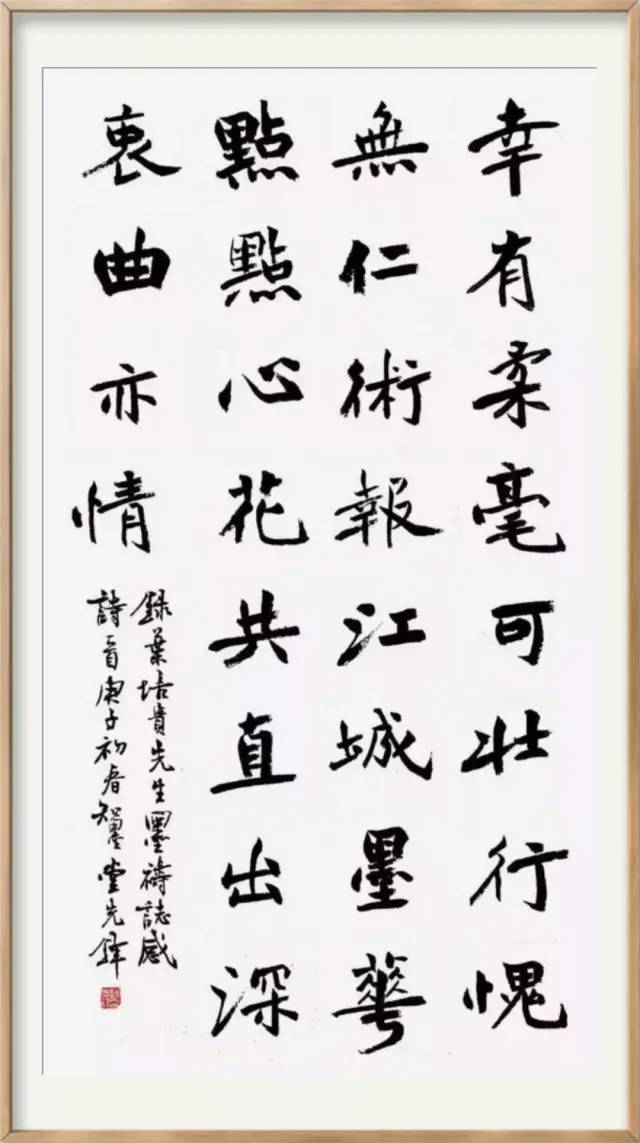 幸有柔毫可壯行愧
無仁術報江城墨華
點點心花共直出深
衷曲亦情
錄葉培貴先生墨禱誌感
詩一首庚子初春智墨堂先鋒